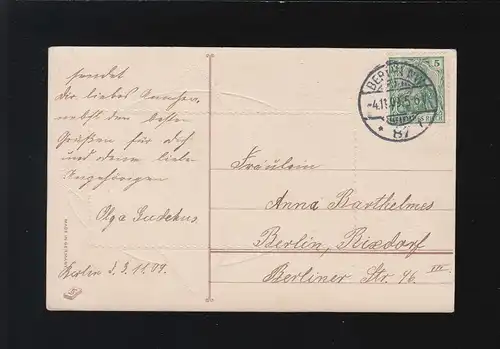 sendet
Dir, liebes Annchen,
nebst den besten
Grüßen für dich
und deine lieben
Angehörigen
Olga Gudehus
Berlin d. 3.11.09.
BERLIN NW
-4.11.09.5-6N
* 87
5
Fräulein
Anna Barthelmes
Berlin, Rixdorf
Berliner Str. 46 III